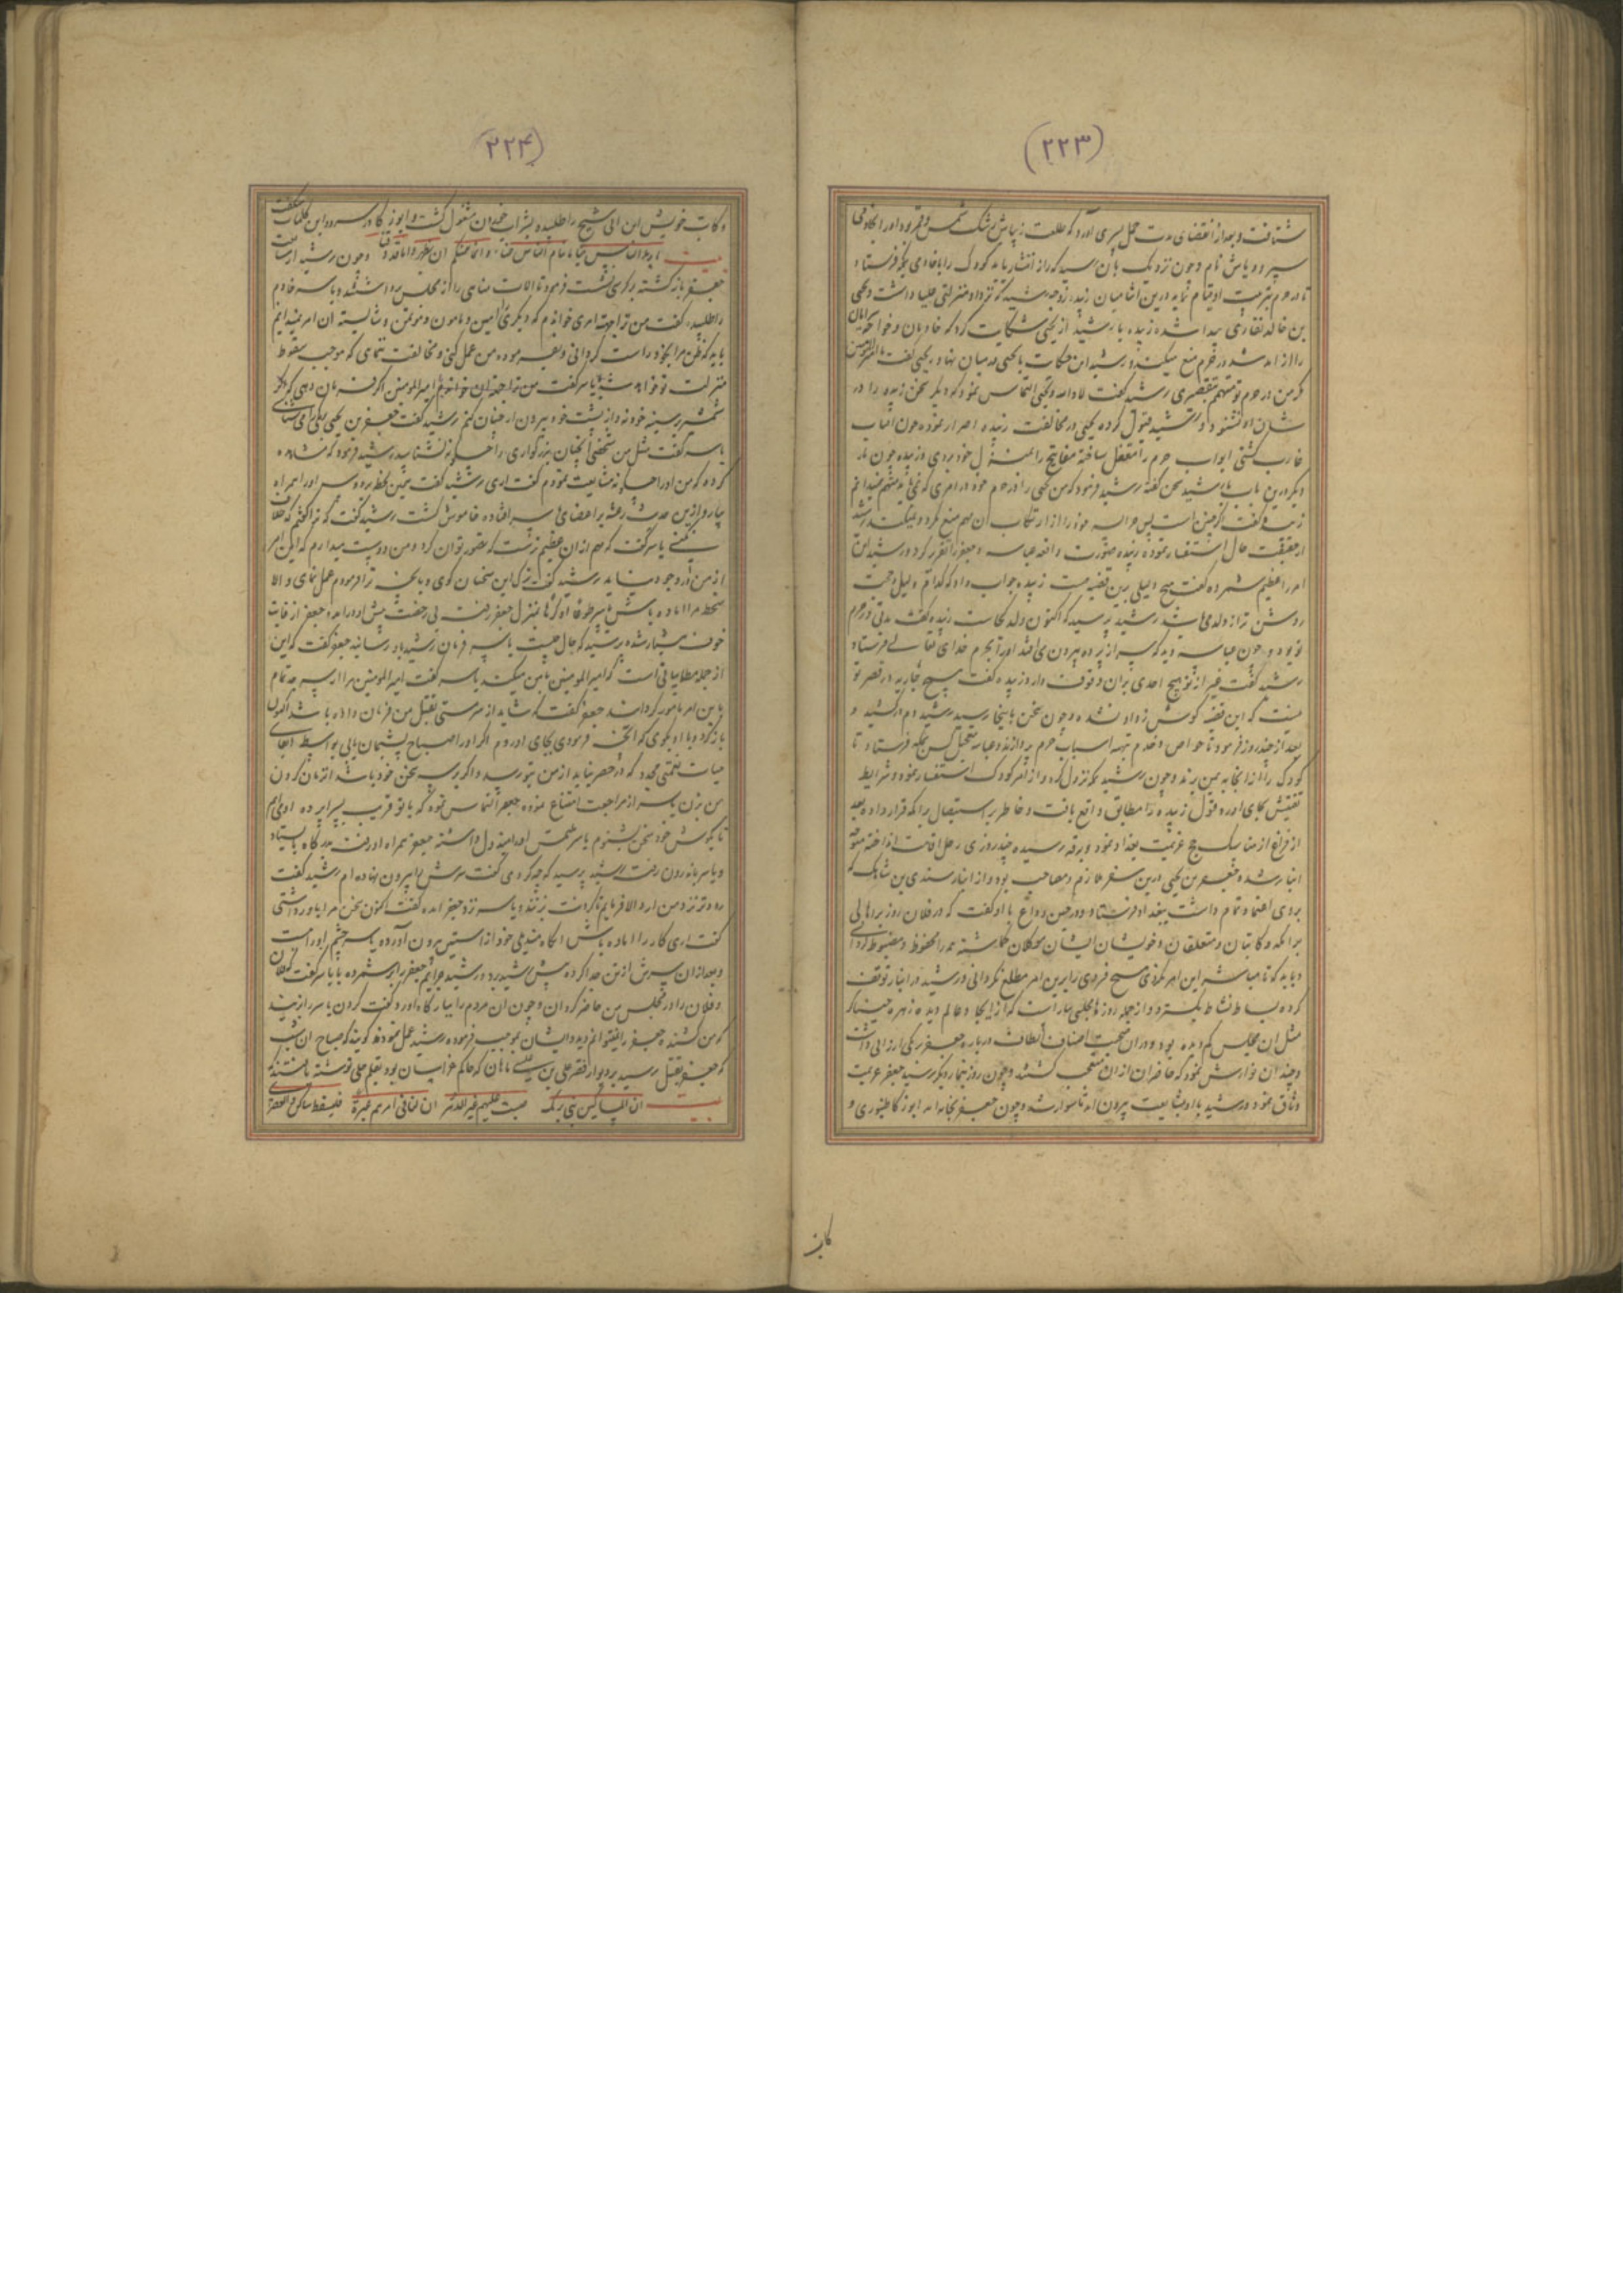 (۲۲۳)
شتافت و بعد از انقضای مدت حمل پسری آورد که طلعت زیبایش رشک شمس و قمر بود و او را بخادمی
سپرد ریاش نام و چون نزدیک بان رسید که راز انتشار یابد کودک را با خادمی بمکه فرستاد
تا در حرم بتربیت او قیام نماید درین اثنا میان زبیده زوجه رشید که نزد او منزلتی علیا داشت و یحیی
بن خالد نقاری پیدا شده زبیده با رشید از یحیی شکایت کرد که خادمان و خواجه سرایان
را از آمد شد در حرم منع میکند و رشید این حکایت با یحیی در میان نهاد یحیی گفت یا امیرالمؤمنین
که من در حرم تو متهم بتقصیری رشید گفت لا والله و یحیی التماس نمود که دیگر سخن زبیده را در
شان او نشنود و رشید قبول کرده یحیی در مخالفت زبیده اصرار نموده چون آفتاب
غارب گشتی ابواب حرم را مقفل ساخته مفاتیح را بمنزل خود بردی و زبیده چون بار
دیگر درین باب با رشید سخن گفته رشید فرمود که من یحیی را در حرم خود در امری که نمی باید متهم نمیدانم
زبیده گفت اگر چنین است پس چرا پسر خود را از ارتکاب آن مهم منع نکرد
از حقیقت حال استفسار نموده زبیده صورت واقعه عباسه و جعفر را تقریر کرد و رشید این
امر را عظیم شمرده گفت هیچ دلیلی برین قضیه هست زبیده جواب داد که کدام دلیل و حجت
روشن تر از ولد می باشد رشید پرسید که اکنون ولد کجاست زبیده گفت مدتی در حرم
تو بود و چون عباسه دید که سر از پرده بیرون می افتد او را بحرم خدای تعالی فرستاد
رشید گفت غیر از تو هیچ احدی بران وقوف دارد زبیده گفت هیچ جاریه در قصر تو
نیست که این قصه گوش زد او نشده و چون سخن باینجا رسید رشید دم درکشید و
بعد از چند روز فرمود تا خواص و خدم تهیه اسباب حرم پردازند و عباسه بتعجیل کس بمکه فرستاد تا
کودک را از آنجا به یمن برند و چون رشید بمکه نزول کرد و از امر کودک استفسار نمود و شرایط
تفتیش بجای آورد و قول زبیده را مطابق واقع یافت و خاطر بر استیصال برامکه قرار داده بعد
از فراغ از مناسک حج عزیمت بغداد نمود و برقه رسیده چند روزی رحل اقامت انداخته متوجه
انبار شد و جعفر بن یحیی درین سفر ملازم و مصاحب بود و از انبار سندی بن شاهک که
بروی اعتماد تمام داشت ببغداد فرستاد و در حین وداع با او گفت که در فلان روز برهالی
برامکه و کاتبان و متعلقان و خویشان ایشان موکلان گماشته همه را محفوظ و مضبوط گردانی
و باید که تا مباشر این امر نگردی هیچ فردی را برین امر مطلع نگردانی و رشید در انبار توقف
کرده بساط نشاط بگسترد و از جمله روزها مجلسی بیاراست که
مثل آن مجلس کم دیده بود و دران صحبت اصناف الطاف درباره جعفر برمکی ارزانی داشت
و چندان نوازش نمود که حاضران از آن متعجب گشتند و چون روز بآخر رسید جعفر عزیمت
وثاق نمود و رشید با او مشایعت بیرون آمد تا سوار شد و چون جعفر بخانه آمد ابوزکار طنبوری و
کاتب
(۲۲۴)
و کاتب خویش ابن ابی شیخ را طلبیده بشراب خوردن مشغول گشت و ابوزکار در سرود این کلمات میگفت
بیت ما یرید الناس منا ما ینام الناس عنا و انما همهم ان یظهروا ما قد دفنا و چون رشید از مشایعت
جعفر باز گشته بر کرسی نشست فرمود تا آلات مناهی را از مجلس برداشتند و یاسر خادم
را طلبیده گفت من ترا جهت امری خوانده ام که دیگری امین و مامون و مؤتمن را شایسته آن امر نمیدانم
باید که ظن مرا بخود راست گردانی و بفرموده من عمل کنی و مخالفت ننمای که موجب سقوط
منزلت تو خواهد شد یاسر گفت یا امیرالمومنین اگر فرمان دهی که
شمشیر بر سینه خود نهم و از پشت خود بیرون آرم چنان کنم رشید گفت جعفر بن یحیی برمکی را می شناسی
یاسر گفت مثل من شخصی آنچنان بزرگواری را چگونه نشناسد رشید فرمود که مشاهده
کردی که من او را چگونه مشایعت نمودم گفت آری رشید گفت همین لحظه برو و سر او را همراه
بیار و ازین حدیث رعشه بر اعضای یاسر افتاده خاموش گشت رشید گفت که ترا گفتم که خلاف
نکنی یاسر گفت که مهم از آن عظیم تر است که تصور توان کرد و من دوست میدارم که این امر
از من در وجود نیاید رشید گفت ترک این سخنان گوی و بآنچه ترا فرمودم عمل نمای و الا
سخط مرا آماده باش یاسر طوعا او کرها بمنزل جعفر رفت بی رخصت پیش او درآمد و جعفر از غایت
خوف هشیار شده پرسید که حال چیست یاسر فرمان رشید باو رسانید جعفر گفت که این
از جمله مطایباتی است که امیرالمومنین با من میکند یاسر گفت امیرالمومنین مرا از سر جد تمام
باین امر مامور گردانید جعفر گفت که شاید از سر مستی بقتل من فرمان داده باشد اکنون
بازگرد و با او بگوی که آنچه فرمودی بجای آوردم اگر او را صباح پشیمان یابی بواسطه ابقای
حیات نعمتی مجدد که در حصر نیاید از من بتو رسد و اگر بر سر سخن خود باشد آنزمان گردن
من بزن یاسر از مراجعت امتناع نموده جعفر التماس نمود که با تو قریب بسراپرده او می آیم
تا بگوش خود سخن بشنوم یاسر ملتمس او را مبذول داشته جعفر همراه او رفت بدرگاه بایستاد
و یاسر باندرون رفت رشید پرسید که چه کردی گفت سرش را بیرون نهاده ام رشید گفت
برو و نزد من آر و الا فرمایم تا گردنت بزنند یاسر نزد جعفر آمده گفت اکنون سخن مرا باور داشتی
گفت آری کار را آماده باش آنگاه مندیلی خود از آستین بیرون آورده یاسر چشم او را بست
و بعد از آن سرش از تن جدا کرده پیش رشید برد و رشید جرایم جعفر را برشمرده با یاسر گفت که فلان
و فلان را در مجلس من حاضر گردان و چون آن مردم را ببارگاه آورد گفت گردن یاسر را بزنید
که من کشنده جعفر را نمیتوانم دید و ایشان بموجب فرموده رشید عمل نمودند گویند که صباح آن شب
که جعفر بقتل رسید بر دیوار قصر علی بن عیسی ماهان که حاکم خراسان بود بقلم جلی نوشته یافتند
بیت ان المساکین بنی برمک صبت علیهم غیر الدهر ان لنا فی امرهم عبرة فلیعتبر ساکن ذا القصر